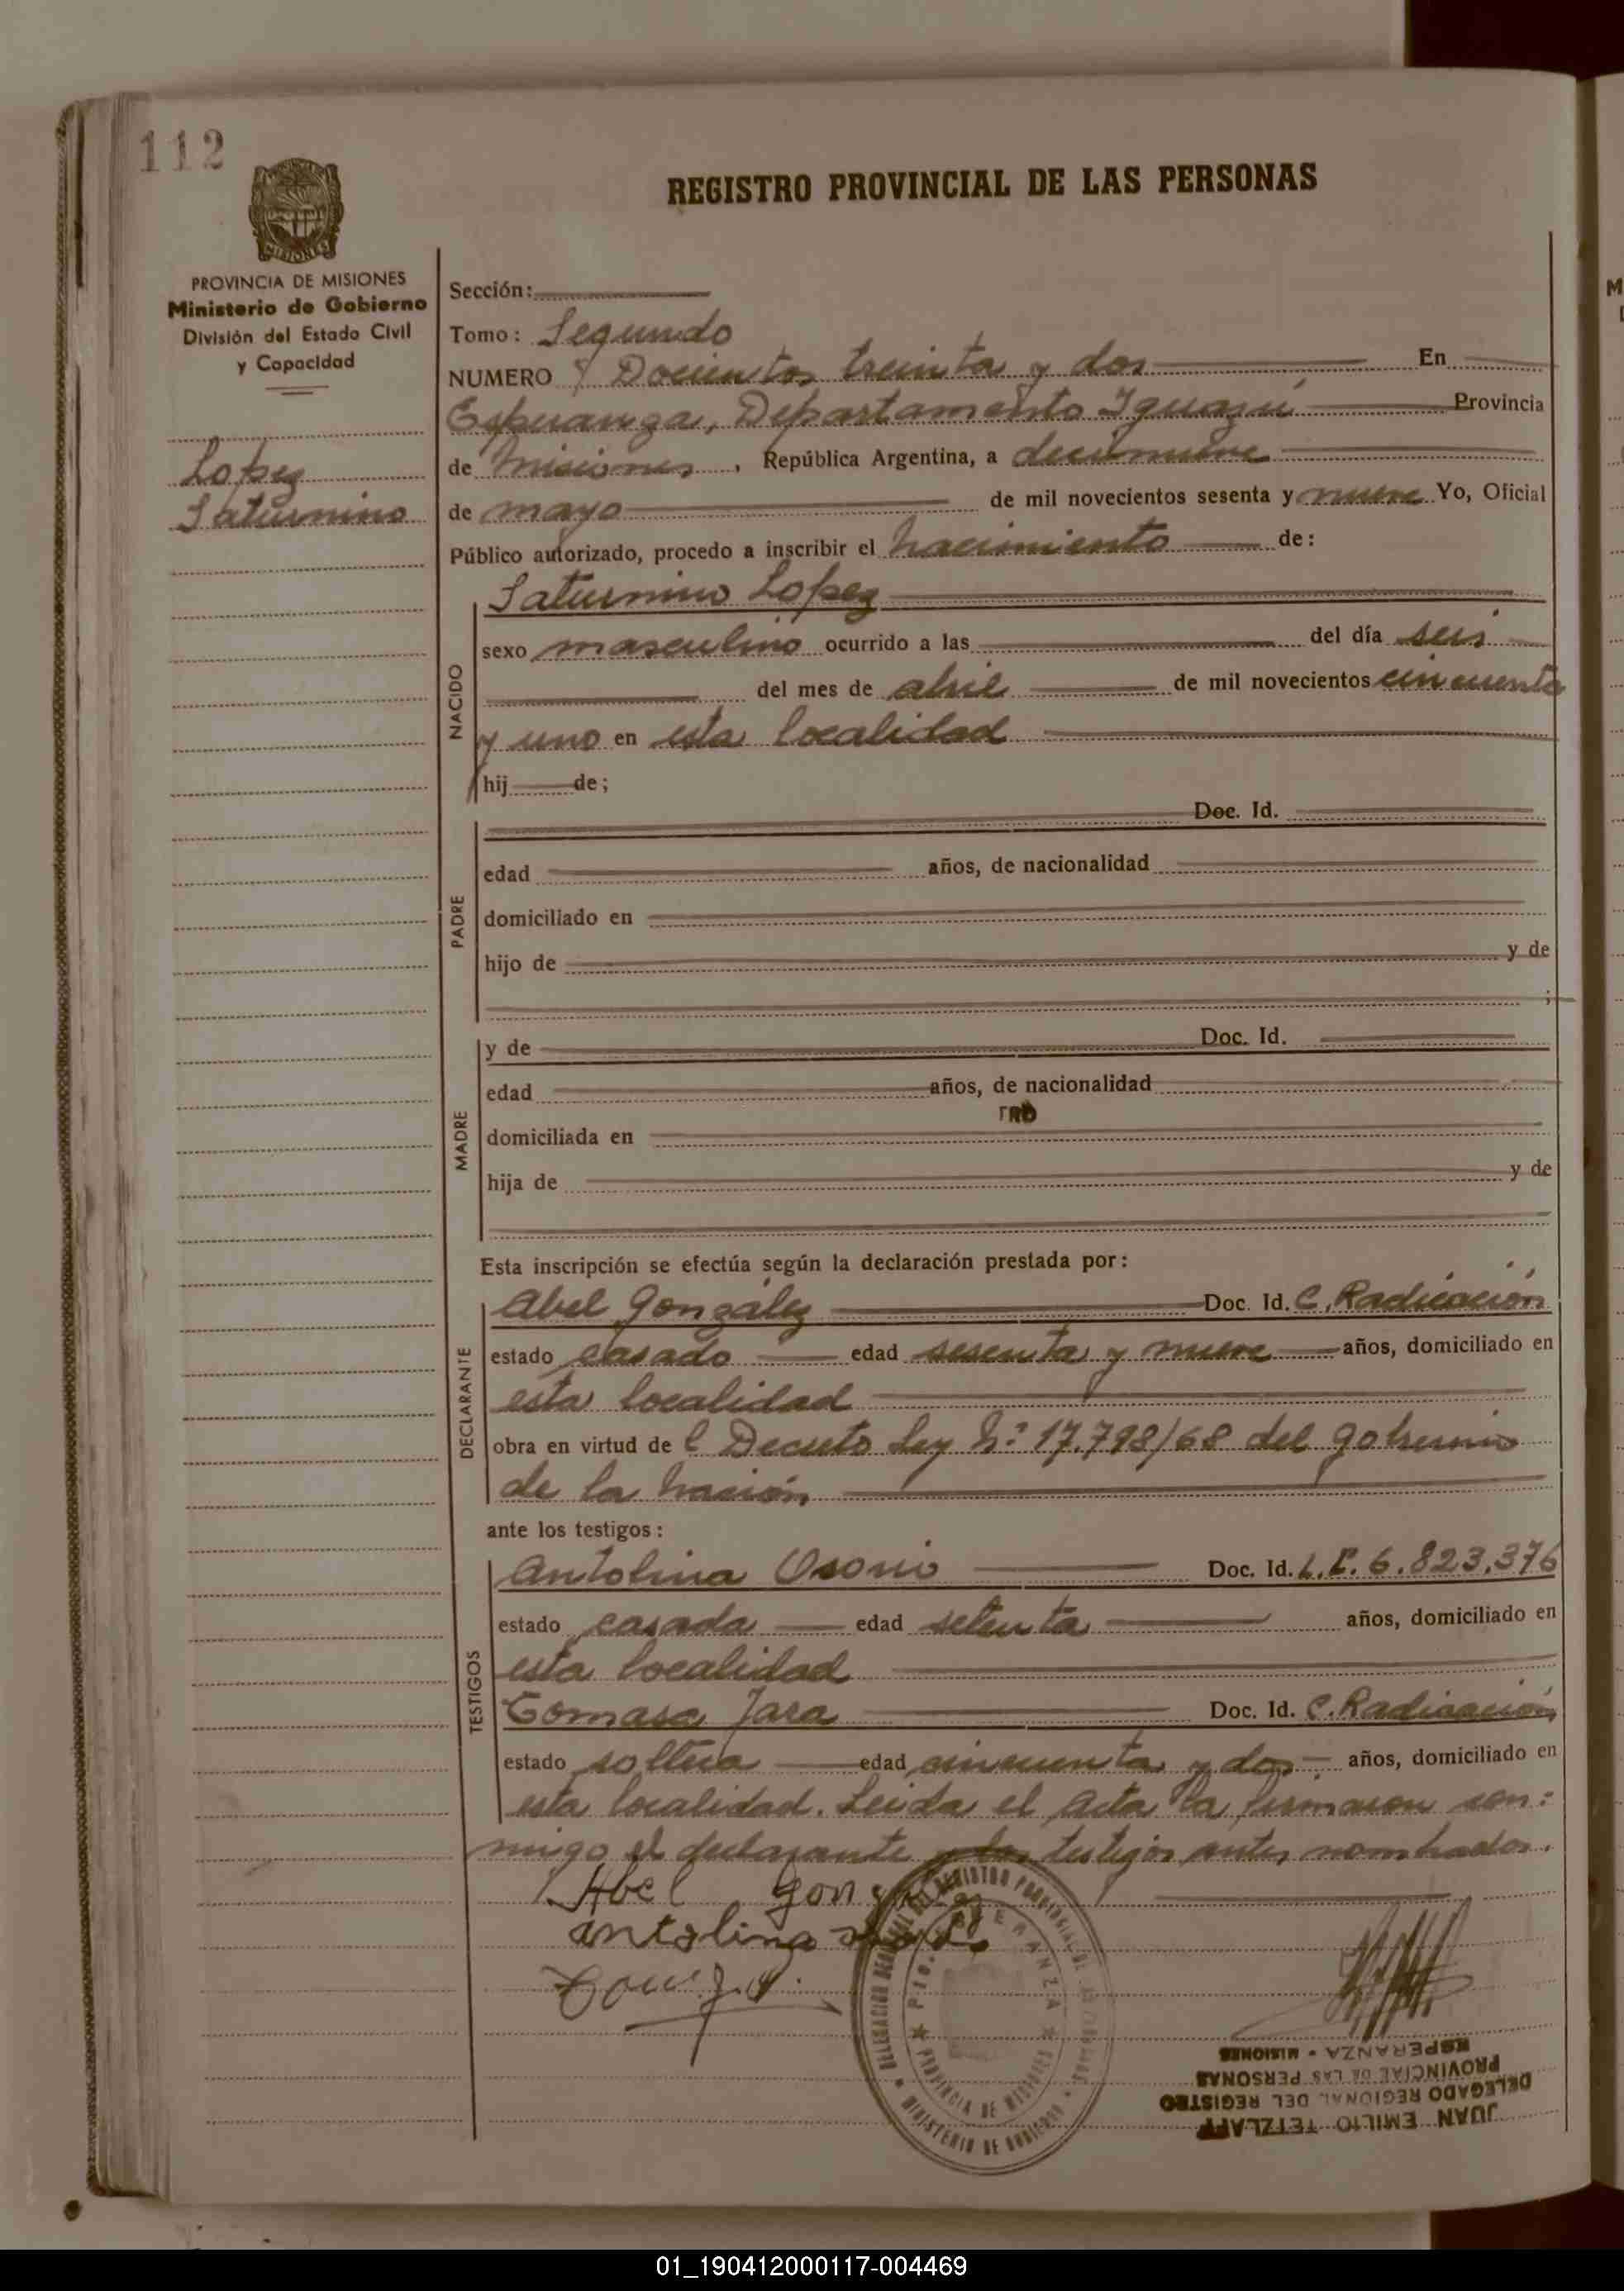 112
REGISTRO PROVINCIAL DE LAS PERSONAS
MISIONES
PROVINCIA DE MISIONES
Ministerio de Gobierno
División del Estado Civil
y Capacidad
Lopez
Saturnino
Sección:
Tomo: Segundo
NUMERO Docientos treinta y dos En
Esperanza, Departamento Iguazú Provincia
de Misiones, República Argentina, a diecinueve
de mayo de mil novecientos sesenta y nueve Yo, Oficial
Público autorizado, procedo a inscribir el nacimiento de:
NACIDO
Saturnino Lopez
sexo masculino ocurrido a las del día seis
del mes de abril de mil novecientos cincuenta
y uno en esta localidad
hij de;
PADRE
Doc. Id.
edad años, de nacionalidad
domiciliado en
hijo de y de
;
MADRE
y de Doc. Id.
edad años, de nacionalidad
domiciliada en
hija de y de
Esta inscripción se efectúa según la declaración prestada por:
DECLARANTE
Abel González Doc. Id. C. Radicación
estado casado edad sesenta y nueve años, domiciliado en
esta localidad
obra en virtud de l Decreto Ley N° 17.798/68 del gobierno
de la nación
ante los testigos:
TESTIGOS
Antolina Osorio Doc. Id. L.C. 6.823.376
estado casada edad setenta años, domiciliado en
esta localidad
Tomasa Jara Doc. Id. C. Radicación
estado soltera edad cincuenta y dos años, domiciliado en
esta localidad. Leida el Acta la firmaron con-
migo el declarante y los testigos antes nombrados.
Abel gonzalez
antolina
REGISTRO PROVINCIAL DE
PROVINCIA DE MISIONES
MINISTERIO DE GOBIERNO
JUAN EMILIO TETZLAFF
DELEGADO REGIONAL DEL REGISTRO
PROVINCIAL DE LAS PERSONAS
ESPERANZA - MISIONES
01_190412000117-004469